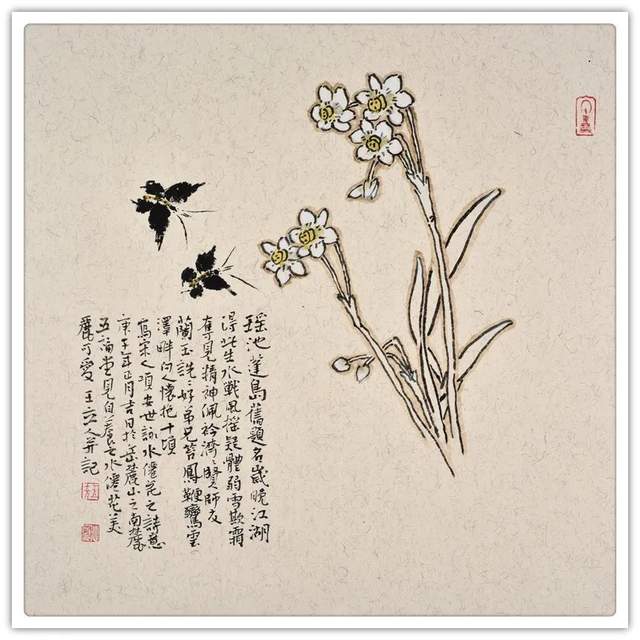 瑶池蓬島舊題名歲晚江湖
得此生水戰風搖疑體弱雪欺霜
奪見精神佩衿濟〻賢師友
蘭玉詵〻好弟兄笞鳳鞭鸞雲
澤畔人懷抱十頃
寫宋人項安世詠水僊花之詩意
庚子年正月吉日於岳麓山之南麓
五福堂見自養之水僊花美
麗可愛 王立人并記